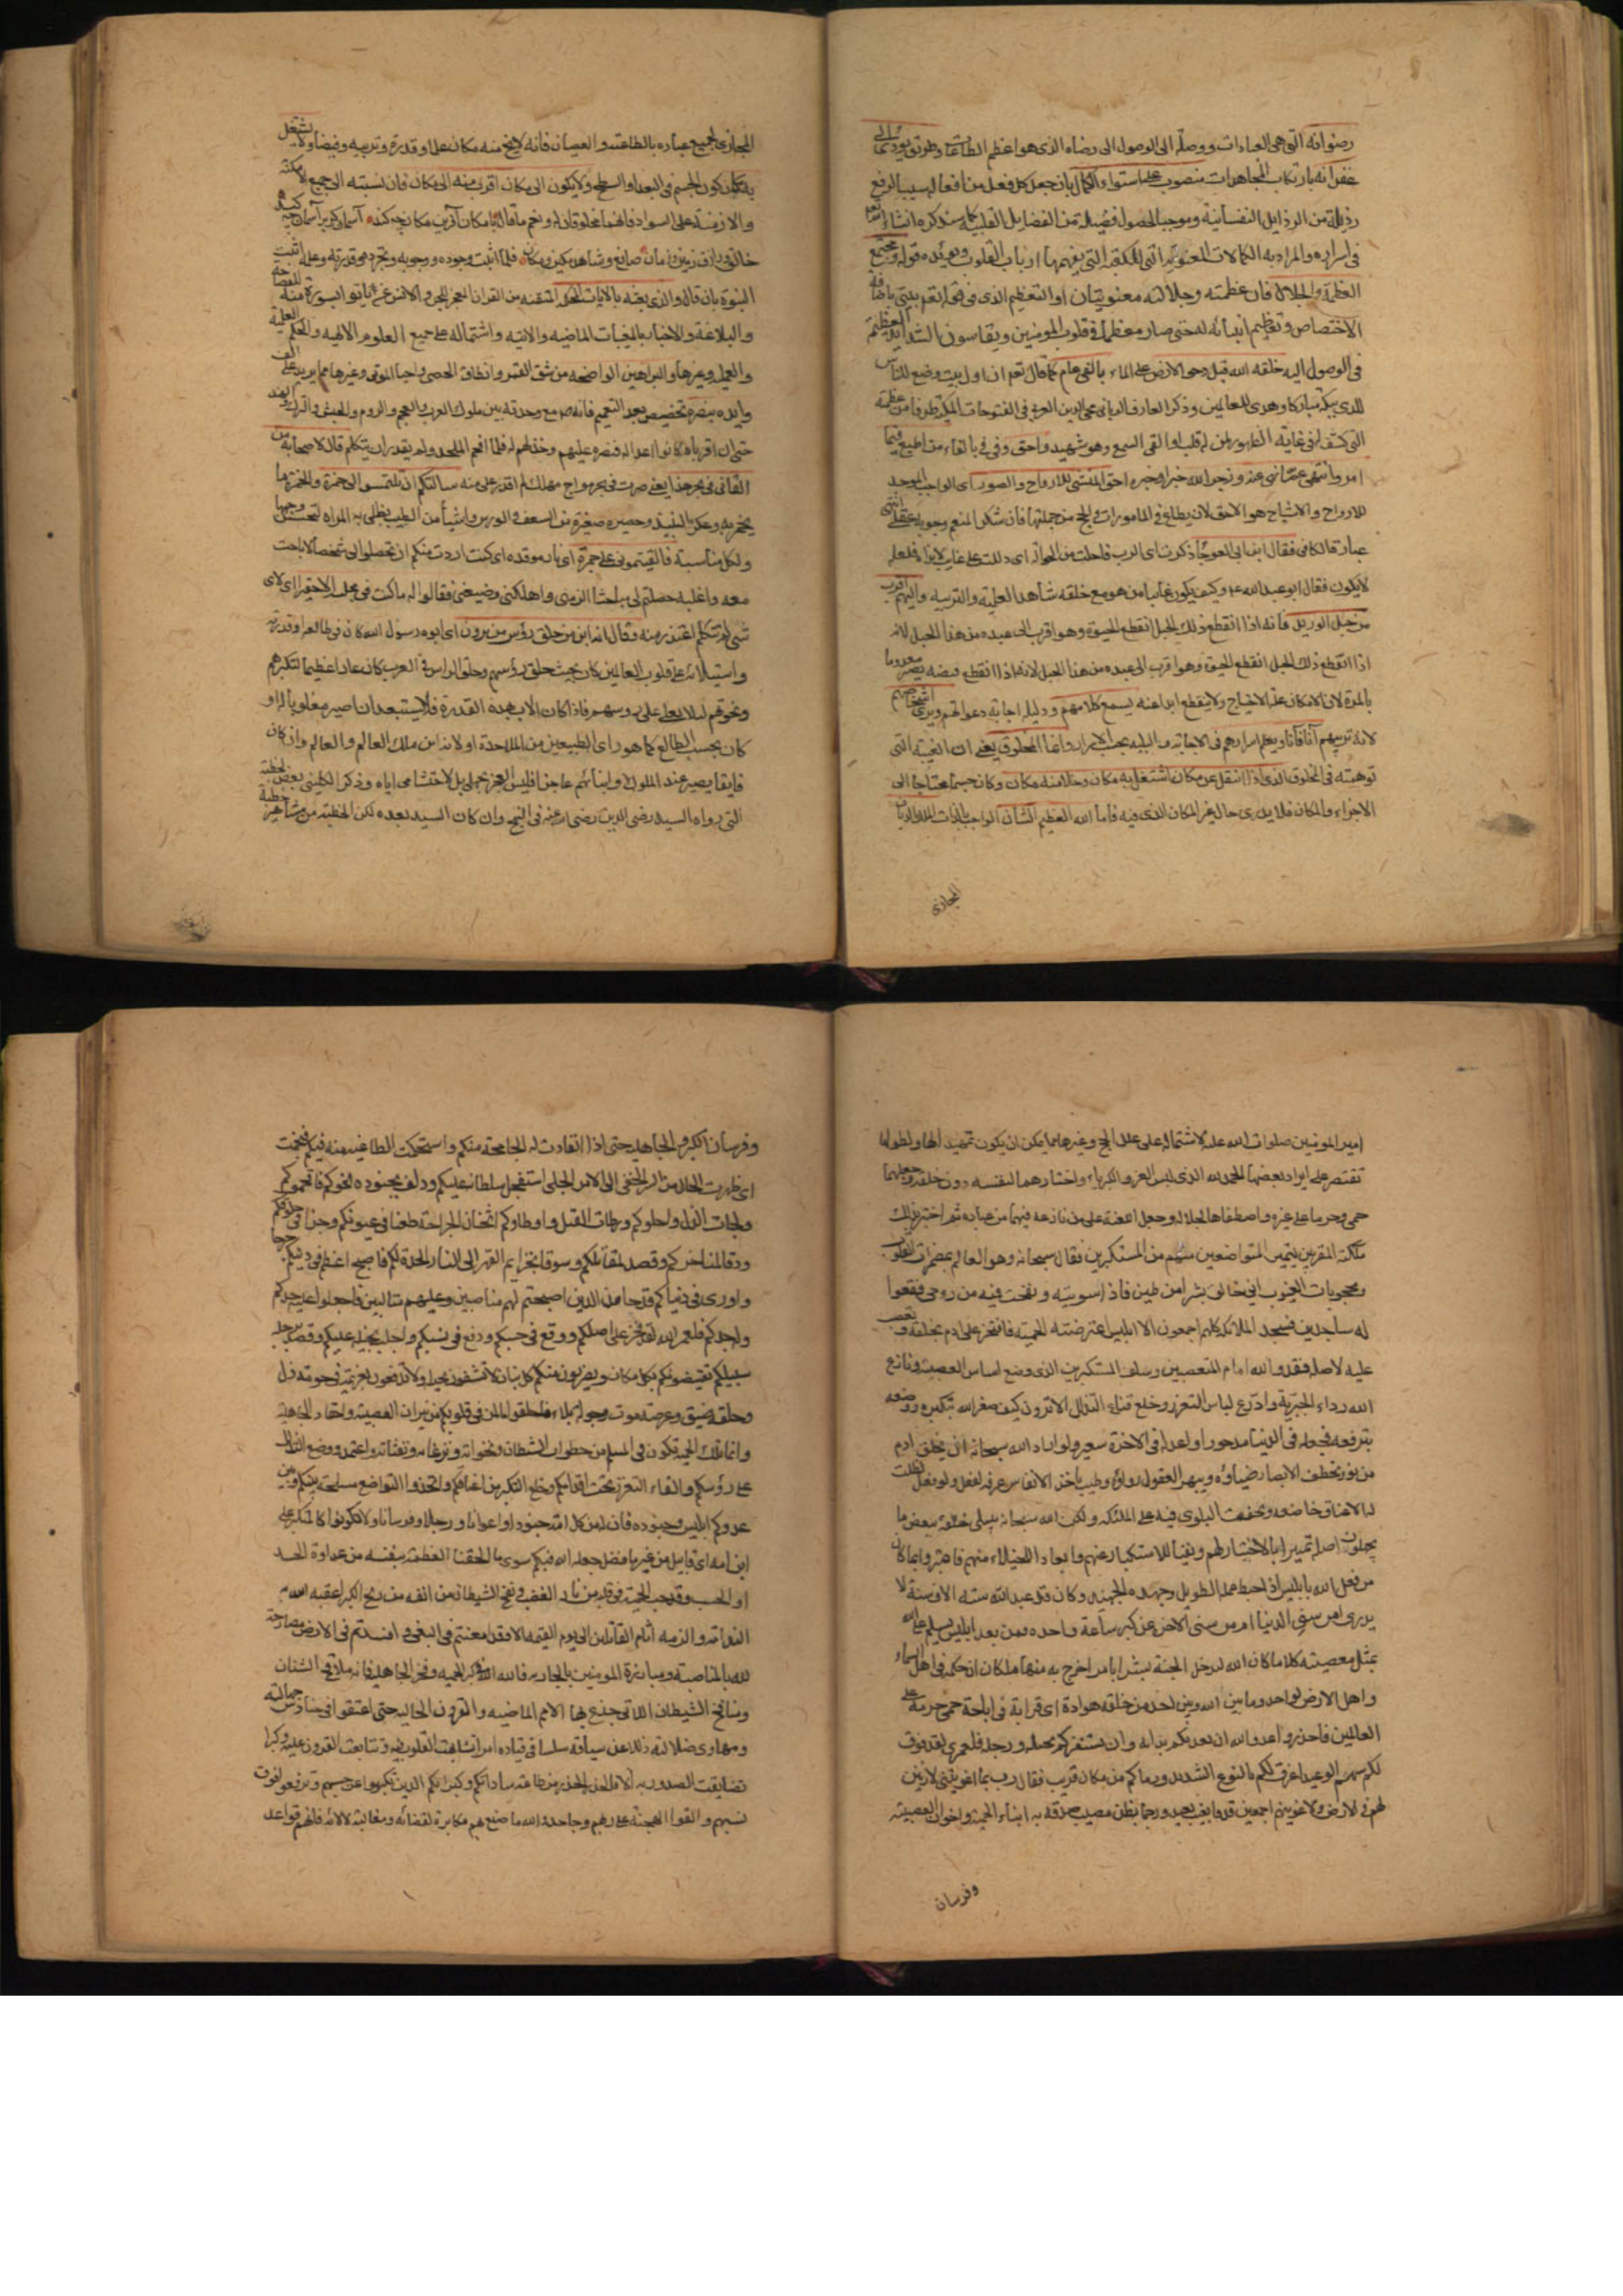 رضوانه التي هي العبادات ووصلة الى الوصول الى رضاه الذي هو اعظم الطاعات وطريق يودي الى
غفرانه بارتكاب المجاهدات منصوب على استواء الكمال بان جعل كل فعل من افعاله سببا لرفع
رذيلة من الرذايل النفسانية وموجبا لحصول فضيلة من الفضايل القلبية كما سنذكره انشاء الله
في اسراره والمراد به الكمالات المعنوية التي للكعبة التي يفهمها ارباب القلوب ويؤيده قوله ومجتمع
العظمة والجلال فان عظمته وجلالته معنويتان او التعظيم الذي في قوله تعم بيتي باضافة
الاختصاص وتعظيم انبيائه له حتى صار معظما في قلوب المومنين ويقاسون الشدايد العظيمة
في الوصول اليه خلقه الله قبل دحو الارض على الماء بالفي عام كما قال تعم ان اول بيت وضع للناس
للذي ببكة مباركا وهدى للعالمين وذكر العارف الرباني محيي الدين العربي في الفتوحات المكية طرفا من عظمته
التي كشف له في غاية الظهور لمن له قلب او القى السمع وهو شهيد واحق وفي في بالغاء من اطيع فيما
امر وانتهي عما نهى عنه وزجر الله خبر او خبره احق المنشئ للارواح والصور اى الواجب الموجد
للارواح والاشباح هو الاحق لان يطاع في المامورات والحج من جملتها فان شكر المنعم وجوبه عقلي انتهى
عبارة الكافي فقال ابن ابي العوجا ذكرت اى الرب فاحلت من الحوالة اى دللت على غايب لانراه فلعله
لايكون فقال ابو عبد الله ع وكيف يكون غائبا من هو مع خلقه شاهد العلية والتربية واليهم اقرب
من حبل الوريد فانه اذا انقطع ذلك الحبل انقطع الحيوة وهو اقرب الى عبده من هذا الحبل لانه
اذا انقطع ذلك الحبل انقطع الحيوة وهو اقرب الى عبده من هذا الحبل لانه اذا انقطع فيضه يصير معدوما
بالمرة لان الامكان علة الاحتياج ولاينقطع ابدا عنه يسمع كلامهم ودليله اجابة دعواتهم ويرى اشخاصهم
لانه تربيهم آنا فآنا ويعلم اسرارهم في الاجابة والبلية بحسب الاسرار وانما المخلوق يعني ان الغيبة التي
توهمته في المخلوق الذي اذا انتقل عن مكان اشتغل به مكان وخلا منه مكان وكان جسما محتاجا الى
الاجزاء والمكان فلا يدري حال غير المكان الذي فيه فاما الله العظيم الشان الواجب بالذات الملك الديان
المجازى
المجازى لجميع عباده بالطاعة والعصيان فانه لايخ منه مكان علما وقدرة وتربية وفيضا ولا يشتغل
به مكان كون الجسم في البعد او السطح ولايكون الى مكان اقرب منه الى مكان فان نسبته الى جميع الامكنة
والازمنة على السواد فانهما مخلوقان له ونعم ما قاله مكان آفرين مكان چه كند آسمان گر بر آسمان چه كند
خالق ورازق زمين وزمان صانع وشاهد مكين ومكان فلما اثبت وجوده ووجوبه وتجرده وقدرته وعلمه اثبت
النبوة بان قال والذي بعثه بالايات المحكمة المتقنة من القران المعجز للجن والانس عن ان ياتوا بسورة منه للفصاحة
والبلاغة والاخبار بالمغيبات الماضيه والاتيه واشتماله على جميع العلوم الالهيه والحكم العلمية
والعملية وغيرها والبراهين الواضحه من شق القمر وانطاق الحصى واحيا الموتى وغيرها مما يزيد على الف
وايده بنصره تخصيص بعد التعميم فانه ص مع وحدته بين ملوك العرب والعجم والروم والحبش والترك والهند
حتى ان اقرباه كانوا اعداله فنصره عليهم وخذلهم له فلما افحم الملحد ولم يقدر ان يتكلم قال لاصحابه من
القاني في بحر هذا يعني صرت في بحر مواج مهلك لم اقدر على منه سالتكم ان تلتمسوا لي خمرة والخمرة ما
يخمر به وعكر النبيذ وحصيرة صغيرة من السعف والورس واشيا من الطيب يطلى به المراة لتحسين وجهها
ولكل مناسبة فالقيتموني على جمرة اى نار موقده اى كنت اردت منكم ان تحصلوا لي شخصا لاباحث
معه واغلبه حصلتم لي مباحثا الزمني واهلكني وضيعني فقالوا له ما كنت في مجلسه الاحقيرا اى لاى
شي لم تتكلم اعتذر منه فقال انه ابن من حلق رؤس من يرون اى ابوه رسول الله كان في طالعه او قدرته
واستيلائه على قلوب العالمين كان بحيث حلق رؤسهم وحلق الراس في العرب كان عارا عظيما لتكبرهم
ونخوتهم لئلا يعلى على روسهم فاذا كان الاب بهذه القدرة فلايستبعد ان اصير مغلوبا له او
كان بحسب الطالع كما هو راى الطبيعين من الملاحدة او لانه ابن ملك العالم والعالم وان كان
فايقا يصير عند الملوك وابنائهم عاجزا فليس العجز بجهلي بل لاحتشامي اياه وذكر الكليني بعض الخطبة
التي رواه السيد رضي الدين رضي الله عنه في النهج وان كان السيد بعده لكن الخطبة من مشاهير خطبة
امير المومنين صلوات الله عليه لاشتماله على علل الحج وغيرها مما يمكن ان يكون تمهيدا لها ولطولها
نقتصر على ايراد بعضها الحمد لله الذي لبس العز والكبرياء واختارهما لنفسه دون خلقه وجعلهما
حمى وحرما على غيره واصطفاهما لجلاله وجعل اللعنة على من نازعه فيهما من عباده ثم اختبر بذلك
ملائكته المقربين ليتميز المتواضعين منهم من المستكبرين فقال سبحانه وهو العالم بمضمرات القلوب
ومحجوبات الغيوب اني خالق بشرا من طين فاذا سويته ونفخت فيه من روحي فقعوا
له ساجدين فسجد الملائكة كلهم اجمعون الا ابليس اعترضته الحمية فافتخر على ادم بخلقه وتعصب
عليه لاصله فعدو الله امام المتعصبين وسلف المستكبرين الذي وضع اساس العصبية ونازع
الله رداء الجبرية وادرع لباس التعزز وخلع قناع التذلل الاترون كيف صغره الله بتكبره ووضعه
بترفعه فجعله في الدنيا مدحورا واعد له في الاخرة سعيرا ولو اراد الله سبحانه ان يخلق ادم
من نور يخطف الابصار ضياؤه ويبهر العقول رواؤه وطيب ياخذ الانفاس عرفه لفعل ولو فعل لظلت
له الاعناق خاضعه ولخفت البلوى فيه على الملئكة ولكن الله سبحانه يبتلي خلقه ببعض ما
يجهلون اصله تمييزا بالاختبار لهم ونفيا للاستكبار عنهم وابعادا للخيلاء منهم فاعتبروا بما كان
من فعل الله بابليس اذ احبط عمله الطويل وجهده الجهيد وكان قد عبد الله ستة الاف سنة لا
يدرى امن سني الدنيا ام من سني الاخرة عن كبر ساعة واحده فمن بعد ابليس يسلم على الله
بمثل معصيته كلا ما كان الله ليدخل الجنة بشرا بامر اخرج به منها ملكا ان حكمه في اهل السماء
واهل الارض لواحد وما بين الله وبين احد من خلقه هوادة اى قرابة في اباحة حمى حرمه على
العالمين فاحذروا عدو الله ان يعديكم بدائه وان يستفزكم بخيله ورجله فلعمري لقد فوق
لكم سهم الوعيد واغرق لكم بالنزع الشديد ورماكم من مكان قريب فقال رب بما اغويتني لازينن
لهم في الارض ولاغوينهم اجمعين قذفا بغيب بعيد ورجما بظن مصيب صدقه به ابناء الحمية واخوان العصبية
وفرسان
وفرسان الكبر والجاهلية حتى اذا انقادت له الجامحة منكم واستحكمت الطماعية منه فيكم فنجمت
اى ظهرت الحال من السر الخفي الى الامر الجلي استفحل سلطانه عليكم ودلف بجنوده نحوكم فاقحموكم
ولجات الذل واحلوكم ورطات القتل واوطاوكم اثخان الجراحة طعنا في عيونكم وحزا في حلوقكم
ودقا لمناخركم وقصدا لمقاتلكم وسوقا بخزايم القهر الى النار المعدة لكم فاصبح اعظم في دينكم جرحا
واورى في دنياكم قدحا من الذين اصبحتم لهم مناصبين وعليهم متالبين فاجعلوا عليه حدكم
وله جدكم فلعمر الله لقد فخر على اصلكم ووقع في حسبكم ودفع في نسبكم واجلب بخيله عليكم وقصد برجله
سبيلكم يقتنصونكم بكل مكان ويضربون منكم كل بنان لاتمتنعون بحيلة ولاتدفعون بعزيمة في حومة ذل
وحلقة ضيق وعرصة موت وجولة بلاء فاطفئوا ما كمن في قلوبكم من نيران العصبية واحقاد الجاهلية
وانما تلك الحمية تكون في المسلم من خطرات الشيطان ونخواته ونزغاته ونفثاته واعتمدوا وضع التذلل
على رؤسكم والقاء التعزز تحت اقدامكم وخلع التكبر من اعناقكم واتخذوا التواضع مسلحة بينكم وبين
عدوكم ابليس وجنوده فان له من كل امة جنودا واعوانا ورجلا وفرسانا ولاتكونوا كالمتكبر على
ابن امه اى قابيل من غير ما فضل جعله الله فيكم سوى ما الحقت العظمة بنفسه من عداوة الحسد
او الحسب وقدحت الحمية في قلبه من نار الغضب ونفخ الشيطان من انفه من ريح الكبر اعقبه الله به
الندامة والزمه آثام القاتلين الى يوم القيمة الا وقد امعنتم في البغي وافسدتم في الارض مصارحة
لله بالمناصبة ومبارزة المومنين بالمحاربه فالله الله في كبر الحميه وفخر الجاهلية فانه ملاقح الشنان
ومنافخ الشيطان اللاتي خدع بها الامم الماضيه والقرون الخاليه حتى اعنقوا في حنادس جهالته
ومهاوى ضلالته ذللا عن سياقه سلسا في قياده امرا تشابهت القلوب فيه وتتابعت القرون عليه وكبرا
تضايقت الصدور به الا فالحذر الحذر من طاعة ساداتكم وكبرائكم الذين تكبروا عن حسبهم وترفعوا فوق
نسبهم والقوا الهجينة على ربهم وجاحدوا الله ما صنع بهم مكابرة لقضائه ومغالبة لالائه فانهم قواعد